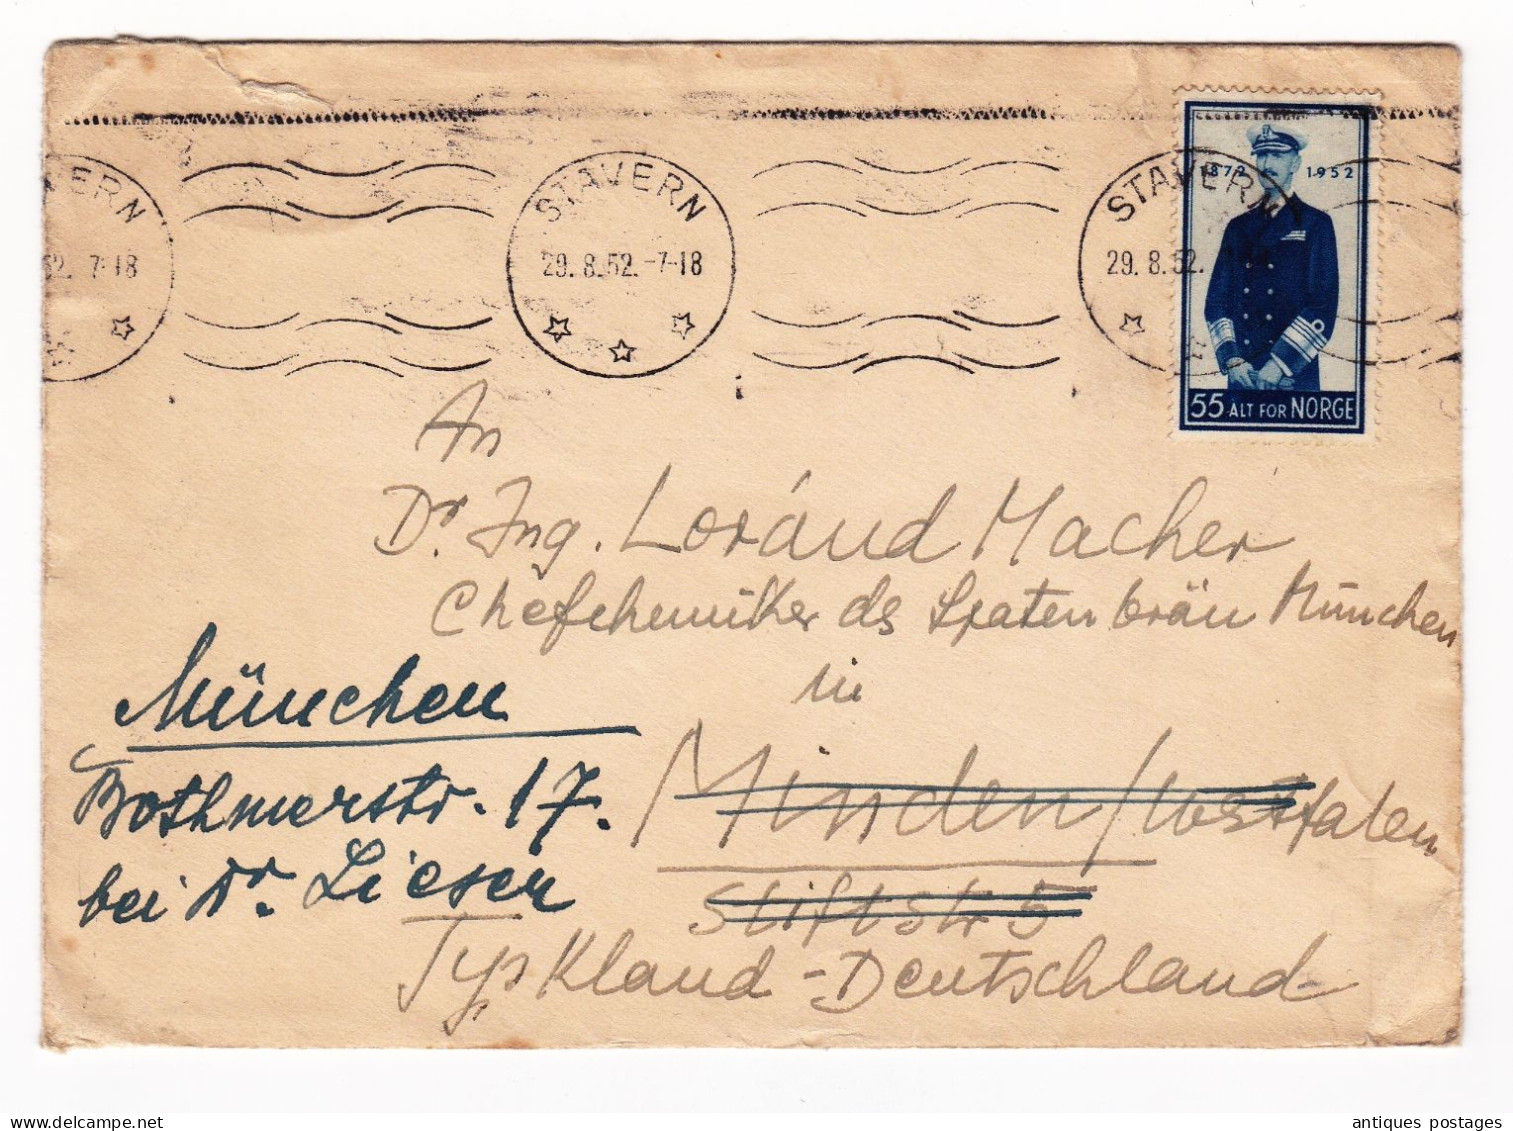 VERN
52. 7-18
STAVERN
29. 8. 52. -7-18
STAVERN
29. 8. 52.
1872 1952
55 ALT FOR NORGE
An
Dr. Ing. Loránd Macher
Chefchemiker ds Spatenbräu München
in
Minden/Westfalen
Stiftstr 5
Tyskland - Deutschland
München
Bothmerstr. 17.
bei Dr. Lieser
antiques postages